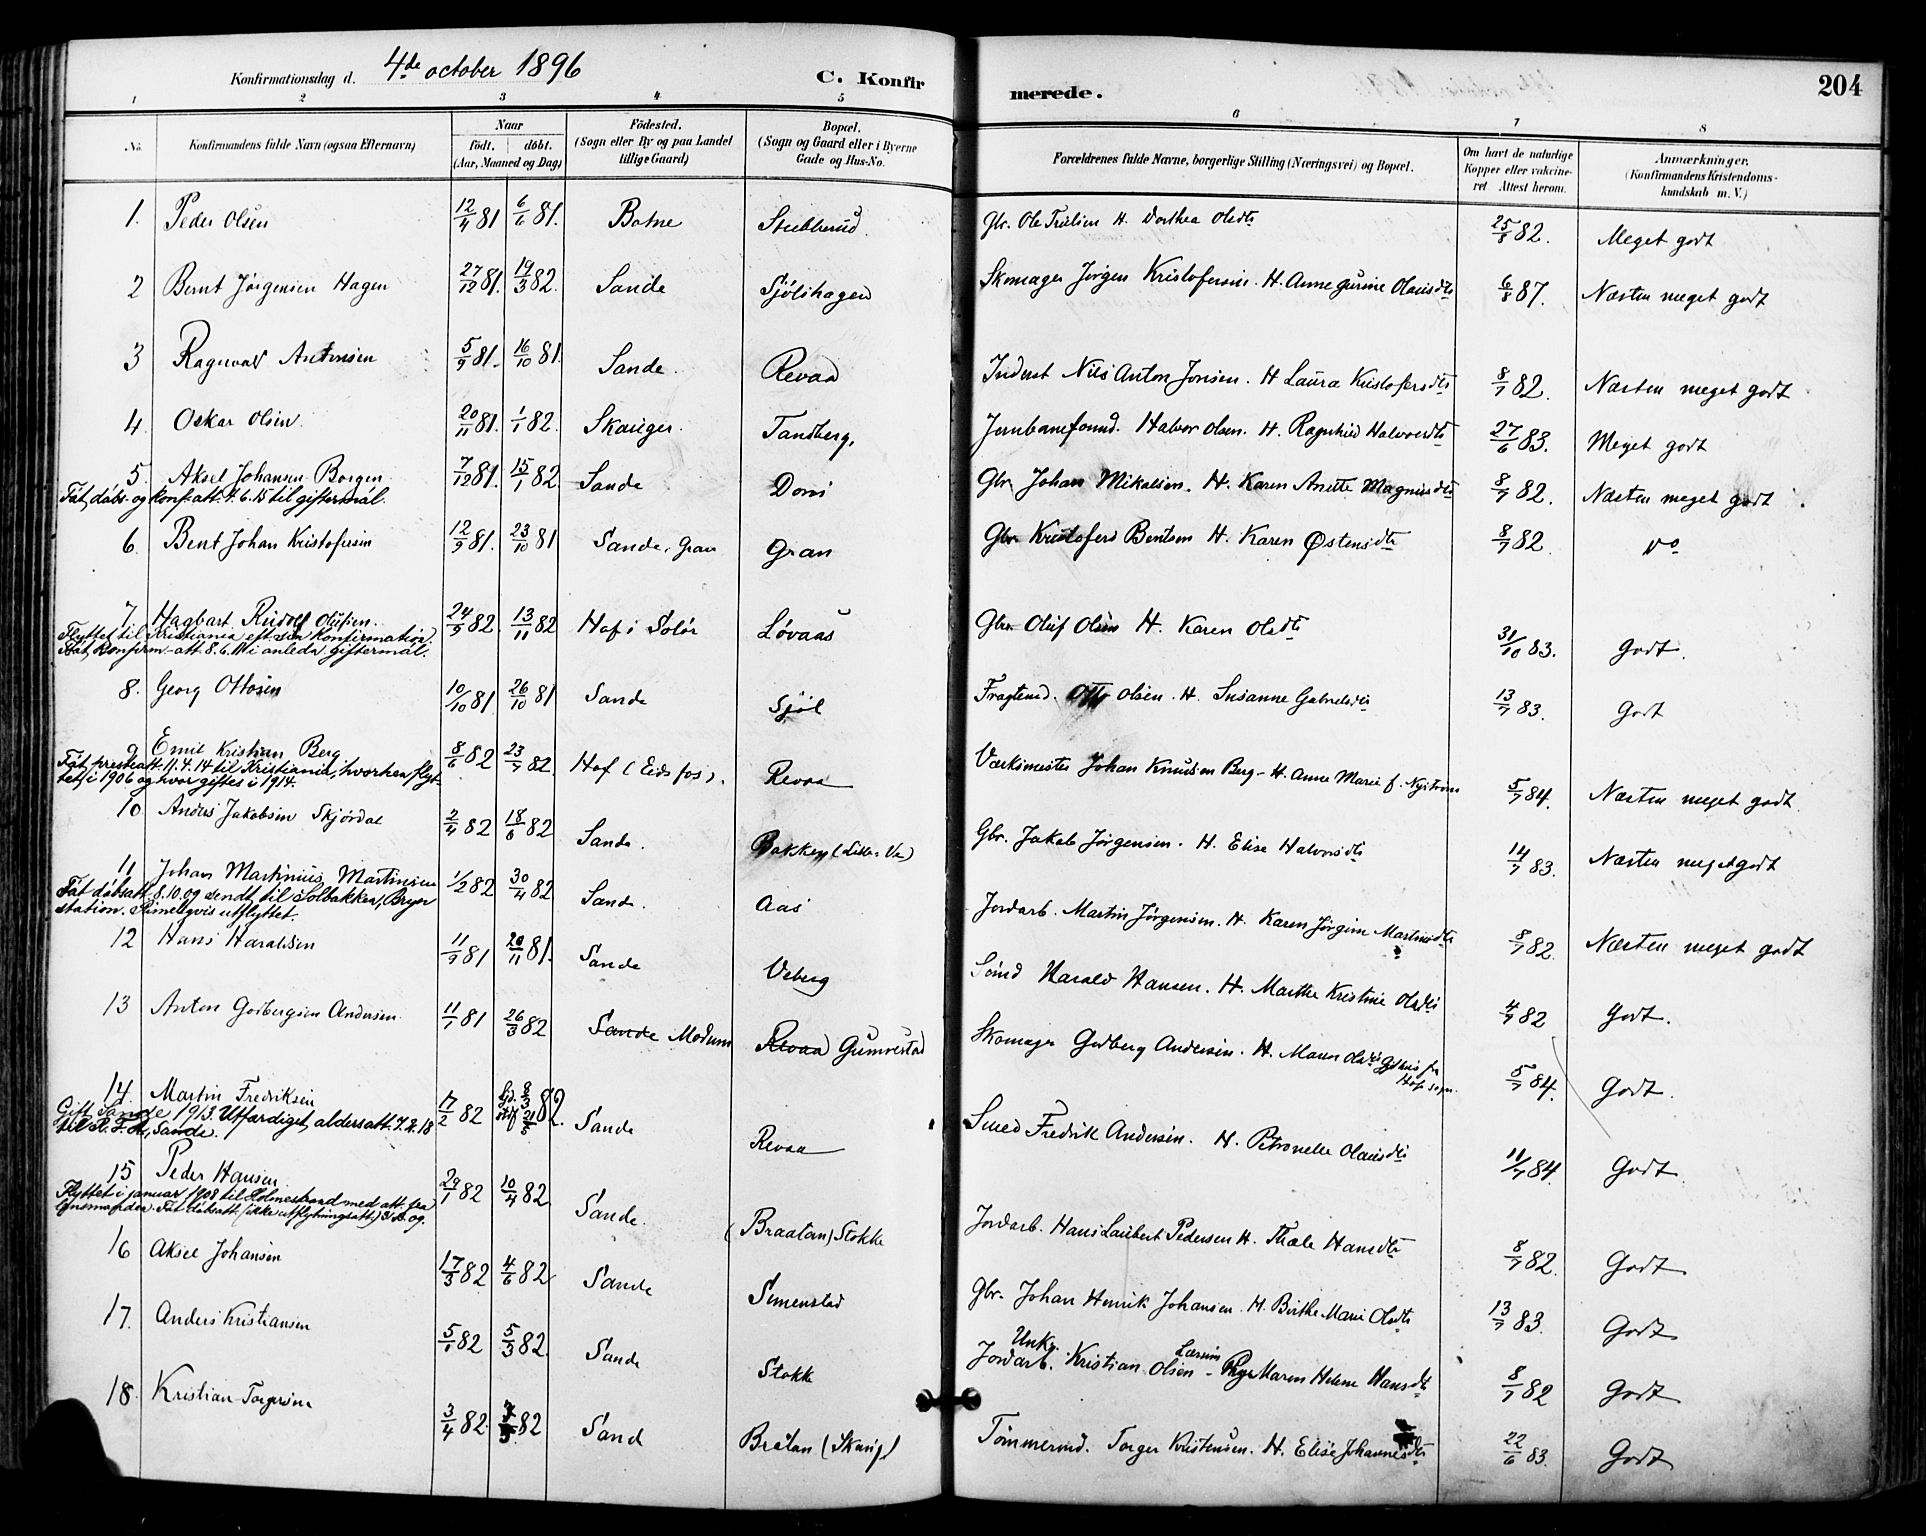 Konfirmationsdag d. 4de october 1896
C. Konfirmerede.
204
1 2 3 4 5 6 7 8
No. Konfirmandens fulde Navn (ogsaa Efternavn) Naar født. døbt. (Aar, Maaned og Dag) Fødested. (Sogn eller By og paa Landet tillige Gaard) Bopæl. (Sogn og Gaard eller i Byerne Gade og Hus-No. Forældrenes fulde Navne, borgerlige Stilling (Næringsvei) og Bopæl. Om havt de naturlige Kopper eller vakcineret Attest herom. Anmærkninger. (Konfirmandens Kristendomskundskab m. V.)
1. Peder Olsen 12/4 81 6/6 81. Botne Stubberud. Gbr. Ole Trulsen H. Dorthea Olsdtr 25/8 82. Meget godt
2 Bernt Jørgensen Hagen 27/12 81. 19/3 82. Sande Sjølshagen Skomager Jørgen Kristofersen. H. Anne Gurine Olausdtr 6/8 87. Næsten meget godt
3 Ragnvald Antonsen 5/9 81. 16/10 81. Sande. Revaa Inderst Nils Anton Jonsen. H Laura Kristofersdtr 8/7 82. Næsten meget godt
4. Oskar Olsen. 20/11 81. 1/1 82. Skauger. Tandberg. Jernbaneformd. Halvor Olsen. H. Ragnhild Halvorsdtr 27/6 83. Meget godt
5. Aksel Johansen Borgen 7/12 81. 15/1 82 Sande Gbr. Johan Mikalsen. H. Karen Anette Magnusdtr 8/7 82. Næsten meget godt
Fåt dåbs- og konf. att. 7.6.15 til giftermål.
6. Bent Johan Kristofersen 12/9 81. 23/10 81 Sande, Gran Gran Gbr. Kristofers Bentsen H. Karen Østensdtr 8/7 82 do
7 Hagbart Rudolf Olufsen. 24/9 82. 13/11 82 Hof i Solør Løvaas Gbr. Oluf Olsen H. Karen Olsdtr 31/10 83. Godt.
Flyttet til Kristiania eft. sin konfirmation.
Fåt konfirm-att. 8.6.11 i anledn. giftermål.
8. Georg Ottosen 10/10 81 26/10 81 Sande Sjøl Fragtemd. Otto Olsen. H. Susanne Gabrielsdtr 13/7 83. Godt
9 Emil Kristian Berg 8/6 82 23/7 82. Hof (Eidsfos). Revaa Værksmester Johan Knudsen Berg- H. Anne Marie f. Nystrøm 5/7 84. Næsten meget godt.
Fåt presteatt. 11.4.14 til Kristiania, hvorhen flyt-
tet i 1906 og hvor giftes i 1914.
10 Anders Jakobsen Skjørdal 2/4 82 18/6 82 Sande. Bakken (Lille-Va) Gbr. Jakob Jørgensen. H. Elise Halvorsdtr 14/7 83. Næsten meget godt
11 Johan Martinius Martinsen 1/2 82 30/4 82 Sand. Aas Jordarb. Martin Jørgensen. H. Karen Jørgine Martinsdtr 8/7 82. Næsten meget godt
Fåt dåbsatt. 8.10.09 sendt til Solbakken, Bryn
station. Rimeligvis utflyttet.
12 Hans Haraldsen 11/9 81 20/11 81. Sande Veberg Sømd Harald Hansen. H. Marthe Kristine Olsdtr 4/7 82 Godt.
13 Anton Godbergsen Andersen. 11/7 81 26/3 82 Sande Modum Revaa Gumrestad Skomager Godberg Andersen. H. Maren Olsdtr 5/7 84. Godt.
Hof sogn.
14. Martin Fredriksen 17/2 82 82. Sande Revaa Smed Fredrik Andersen. H. Petronelle Olausdtr 11/7 84. Godt
Gift Sande 1913. Utfærdiget aldersatt. 7.2.18
til Sande.
15 Peder Hansen 29/1 82 10/4 82 Sande. (Braatan) Stokke Jordarb. Hans Laubert Pedersen H. Thale Hansdtr 8/7 82. Godt
Flyttet i januar 1908 til Holmestrand med att. fra
lensmanden. Fåt dåbsatt. (ikke utflytningsatt.)
16 Aksel Johansen 17/3 82 4/6 82 Sande Simenstad Gbr. Johan Henrik Johansen. H. Birthe Marie Olsdtr 13/7 83. Godt
17. Anders Kristiansen 5/1 82 5/3 82. Sande Stokke Unk. Jordarb. Kristian Olsen Larsens - Pige Maren Helene Hansdtr 8/7 82 Godt
18. Kristian Torgersen 3/4 82. 82 Sand Bråtan (Skaug) Tømmermd. Torger Kristensen. H. Elise Johannesdtr 22/6 83. Godt